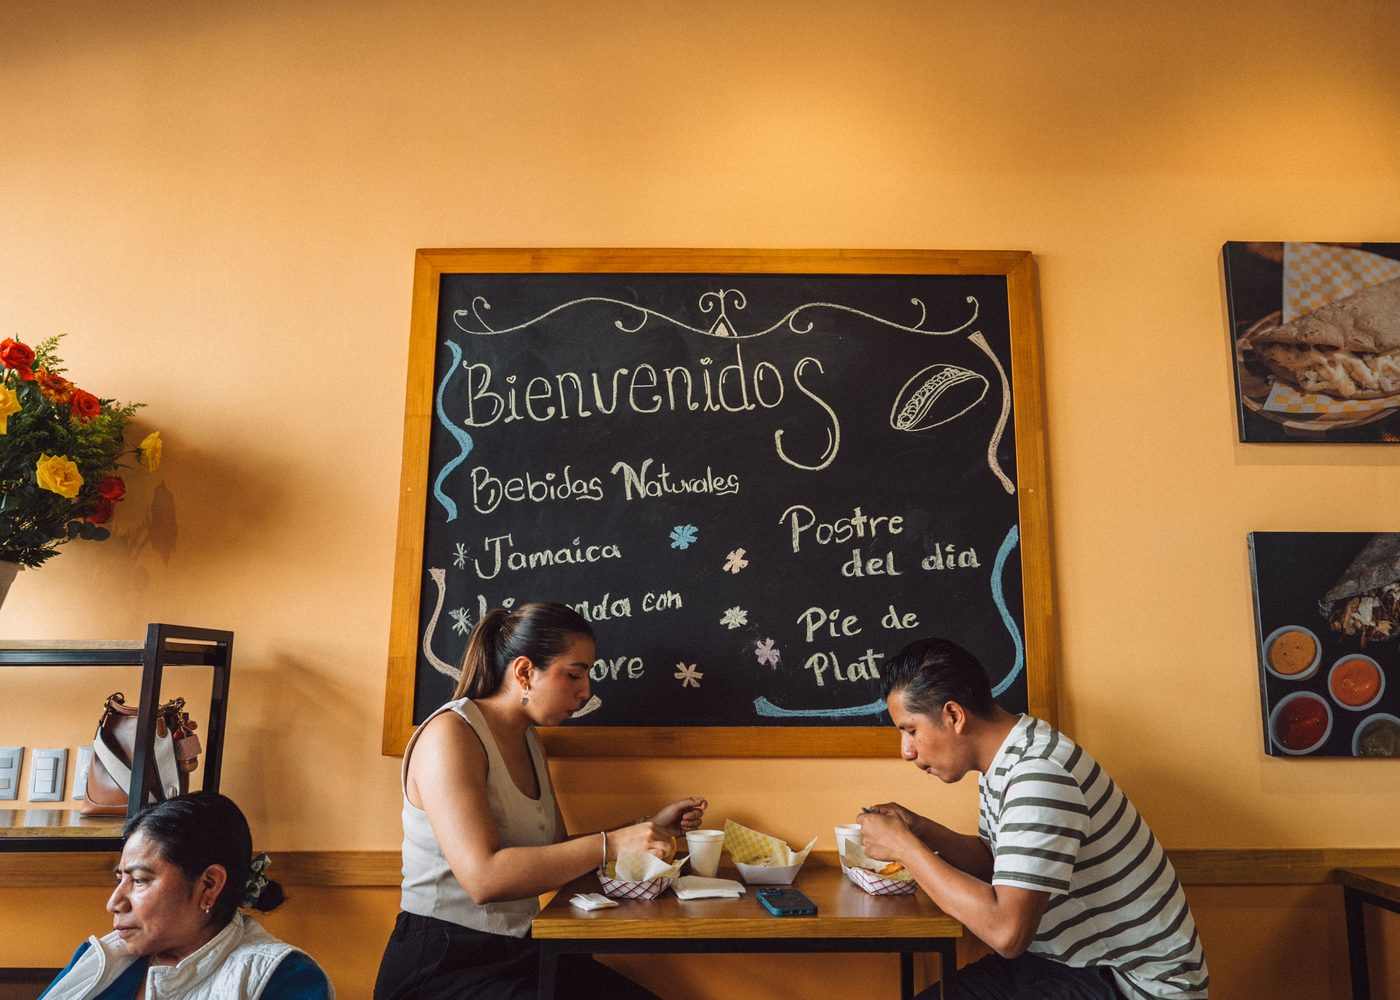 Bienvenidos
Bebidas Naturales
Jamaica
con
Postre
del dia
Pie de